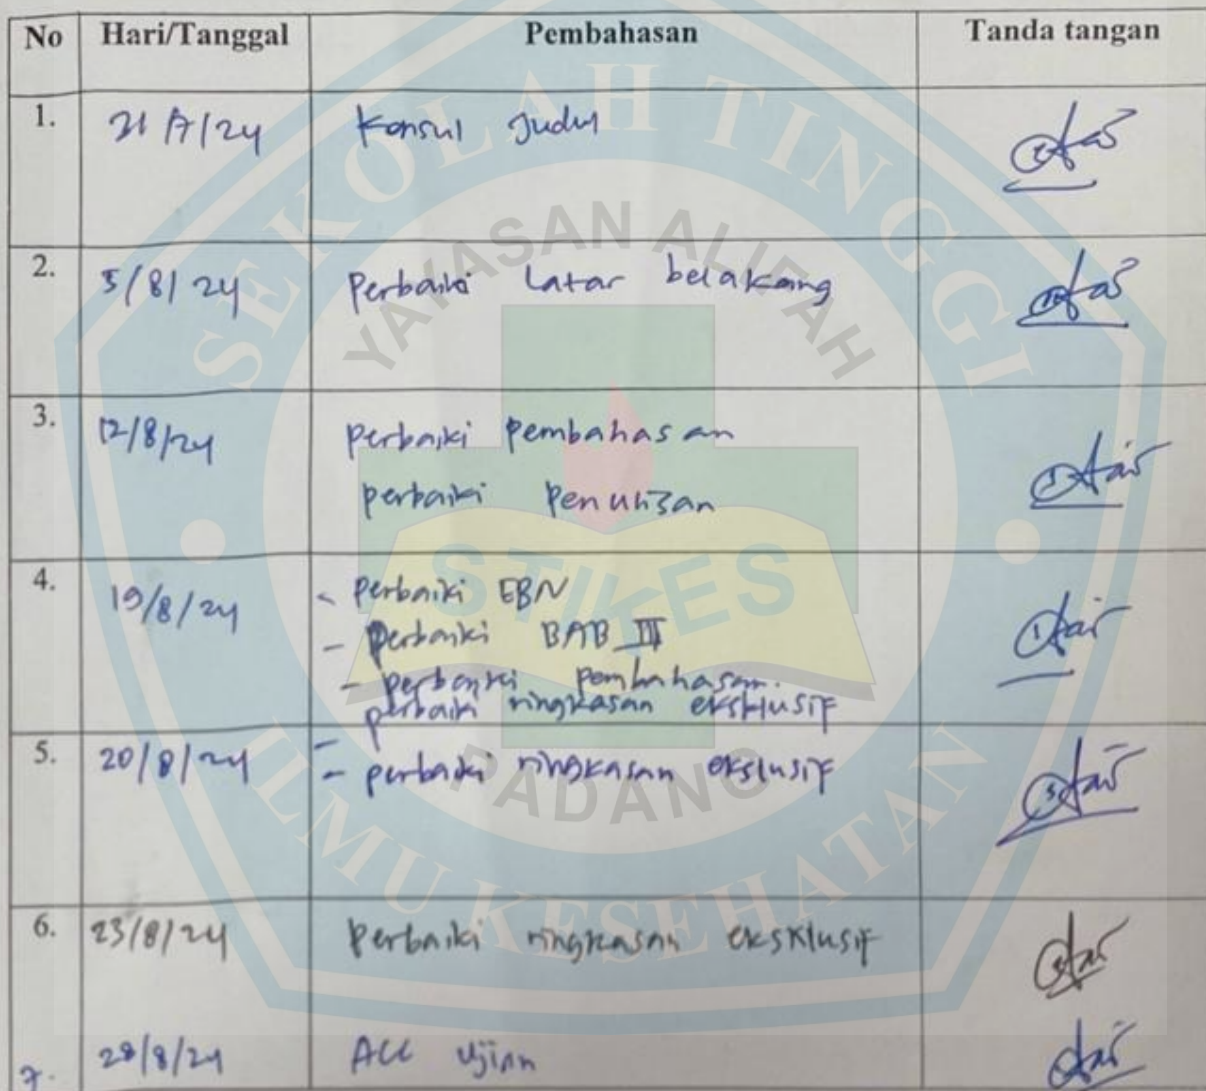 No Hari/Tanggal Pembahasan Tanda tangan
1. Konsul Judul
2. 5/8/24 Perbaiki Latar belakang
3. 12/8/24 Perbaiki Pembahasan
perbaiki Penulisan
4. 19/8/24 - Perbaiki EBN
- Perbaiki BAB III
- perbaiki pembahasan.
- perbaiki ringkasan eksklusif
5. 20/8/24 - perbaiki ringkasan ekslusif
6. 23/8/24 Perbaiki ringkasan eksklusif
7. 28/8/24 ACC Ujian
SEKOLAH TINGGI
YAYASAN ALIFAH
STIKES
PADANG
ILMU KESEHATAN